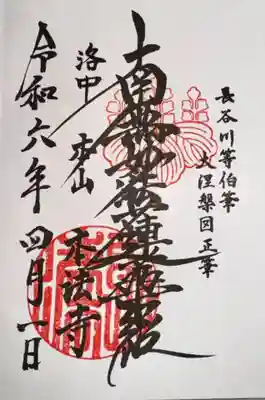 長谷川等伯筆
大涅槃図正筆
南無妙法蓮華経
洛中 本山
本法寺
令和六年 四月 一日